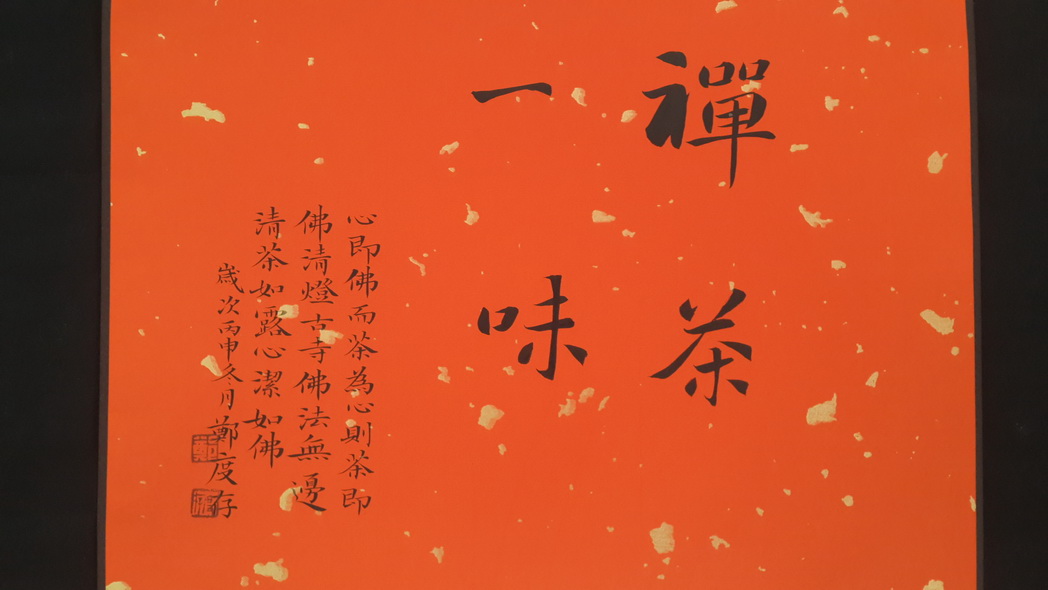 禪茶
一味
心即佛而茶為心則茶即
佛清燈古寺佛法無邊
清茶如露心潔如佛
歲次丙申冬月鄭度存